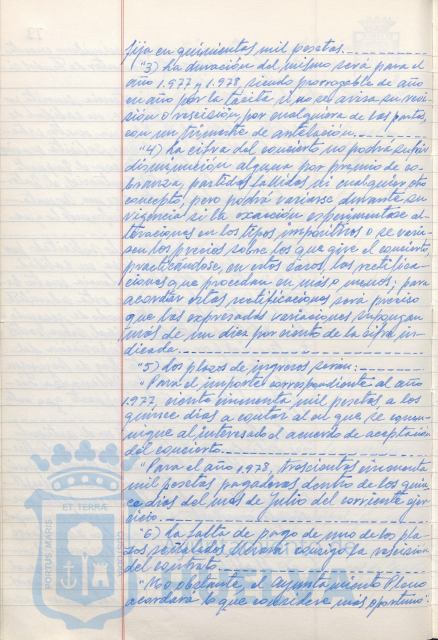 fija en quinientas mil pesetas.
"3) La duración del mismo será para el
año 1.977 y 1.978, siendo prorrogable de año
en año por la tácita si no se avisa su revi-
sión o rescisión, por cualquiera de las partes,
con un trimestre de antelación.
"4) La cifra del concierto no podrá sufrir
disminución alguna por premio de co-
branza, partidas fallidas ni cualquier otro
concepto, pero podrá variarse durante su
vigencia si la exacción experimentase al-
teraciones en los tipos impositivos o se varia-
sen los precios sobre los que gire el concierto,
practicándose, en estos casos, las rectifica-
ciones que procedan en más o menos; para
acordar estas rectificaciones será preciso
que las expresadas variaciones supongan
más de un diez por ciento de la cifra in-
dicada.
"5) Los plazos de ingreso serán:
"Para el importe correspondiente al año
1.977, ciento cincuenta mil pesetas a los
quince días a contar al en que se comu-
nique al interesado el acuerdo de aceptación
del concierto.
"Para el año 1.978, trescientas cincuenta
mil pesetas pagaderas dentro de los quin-
ce días del mes de Julio del corriente ejer-
cicio.
"6) La falta de pago de uno de los pla-
zos señalados llevará consigo la rescisión
del contrato.
"No obstante, el Ayuntamiento Pleno
acordará lo que considere más oportuno".
PORTUS MARIS
ET TERRA